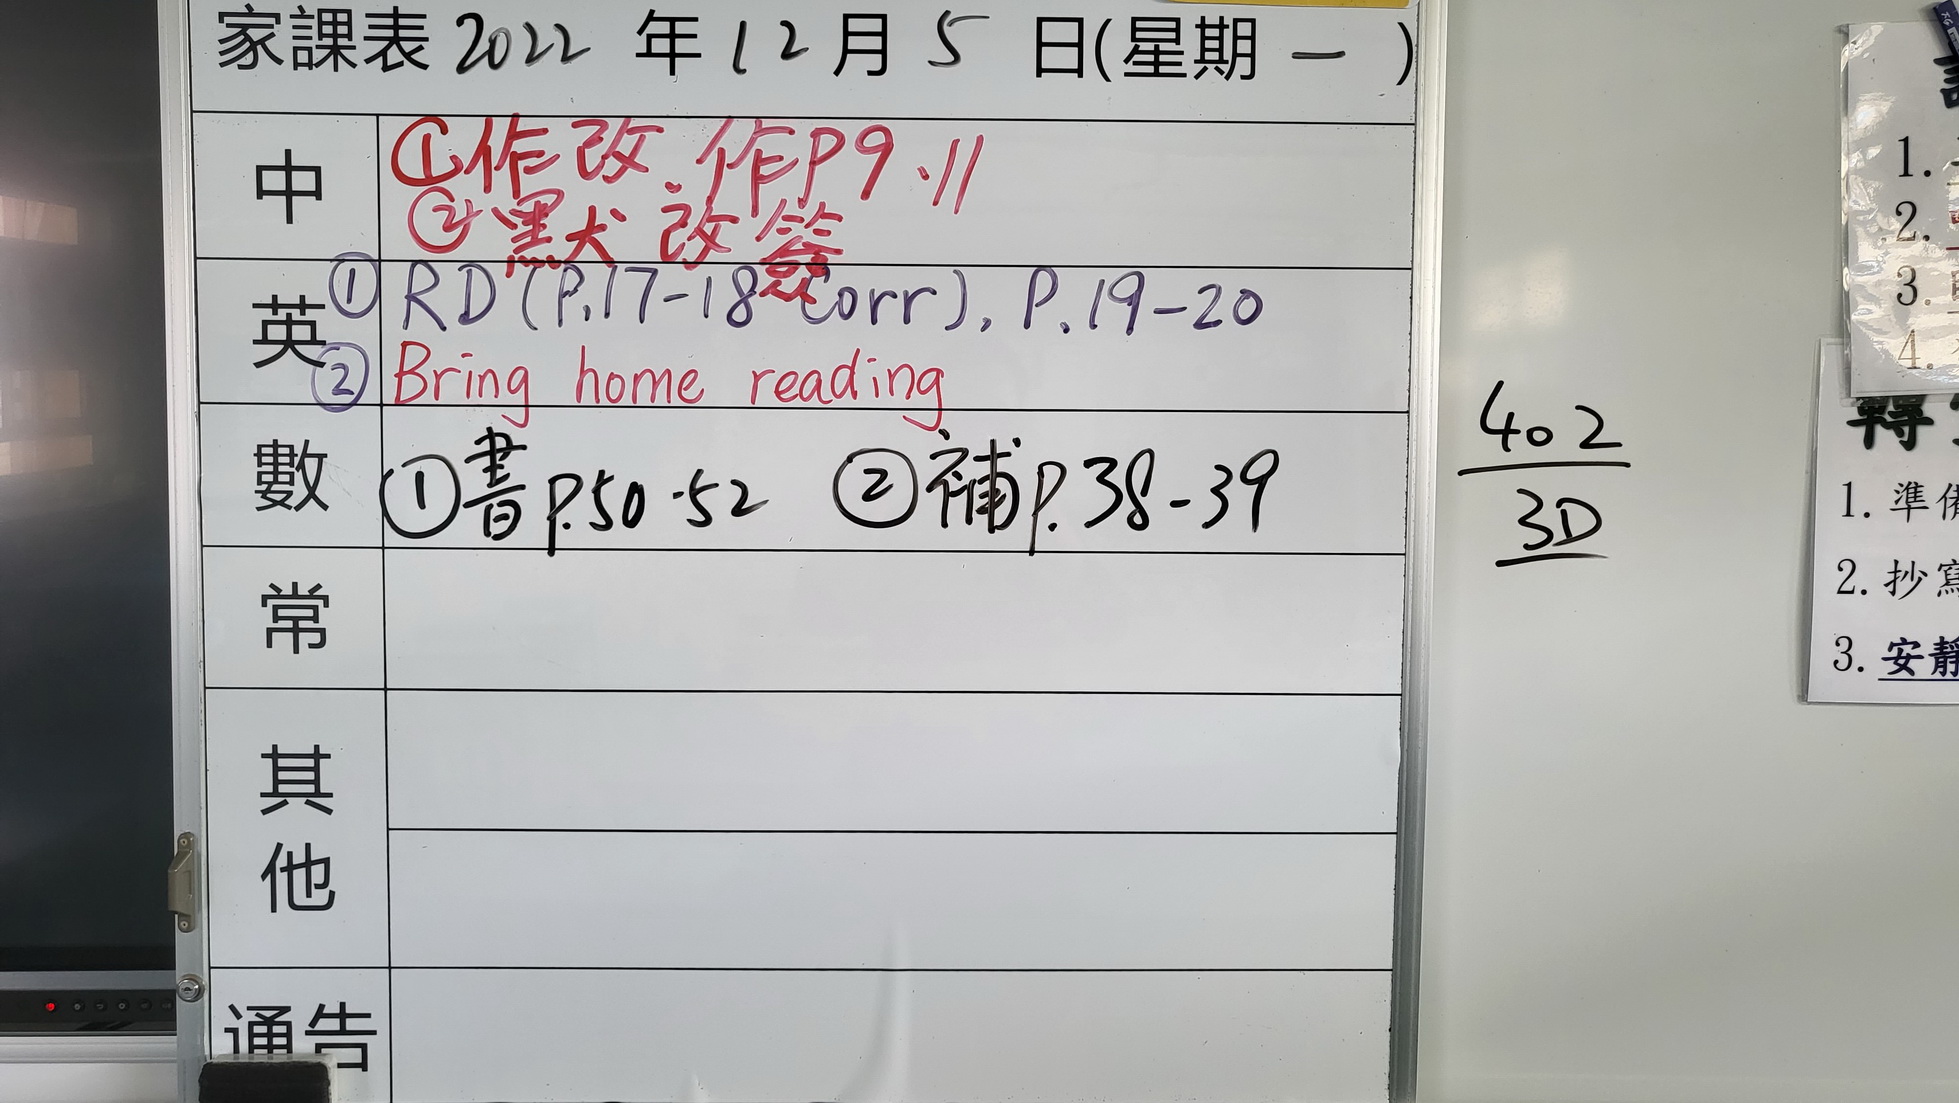 家課表 2022 年 12 月 5 日(星期 一 )
中
①作改.作P9.11
②默改簽
英
① RD (P.17-18 Corr), P.19-20
② Bring home reading
數
①書p.50-52 ②補p.38-39
常
其他
通告
402
3D
1.
2.
3.
4.
轉
1. 準備
2. 抄寫
3. 安靜